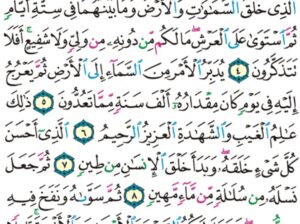 الَّذِى خَلَقَ السَّمَٰوَٰتِ وَالْأَرْضَ وَمَا بَيْنَهُمَا فِى سِتَّةِ أَيَّامٍ
ثُمَّ اسْتَوَىٰ عَلَى الْعَرْشِ مَا لَكُم مِّن دُونِهِۦ مِن وَلِىٍّ وَلَا شَفِيعٍ أَفَلَا
تَتَذَكَّرُونَ ٤ يُدَبِّرُ الْأَمْرَ مِنَ السَّمَآءِ إِلَى الْأَرْضِ ثُمَّ يَعْرُجُ
إِلَيْهِ فِى يَوْمٍ كَانَ مِقْدَارُهُۥٓ أَلْفَ سَنَةٍ مِّمَّا تَعُدُّونَ ٥ ذَٰلِكَ
عَٰلِمُ الْغَيْبِ وَالشَّهَٰدَةِ الْعَزِيزُ الرَّحِيمُ ٦ الَّذِىٓ أَحْسَنَ
كُلَّ شَىْءٍ خَلَقَهُۥ وَبَدَأَ خَلْقَ الْإِنسَٰنِ مِن طِينٍ ٧ ثُمَّ جَعَلَ
نَسْلَهُۥ مِن سُلَٰلَةٍ مِّن مَّآءٍ مَّهِينٍ ٨ ثُمَّ سَوَّىٰهُ وَنَفَخَ فِيهِ